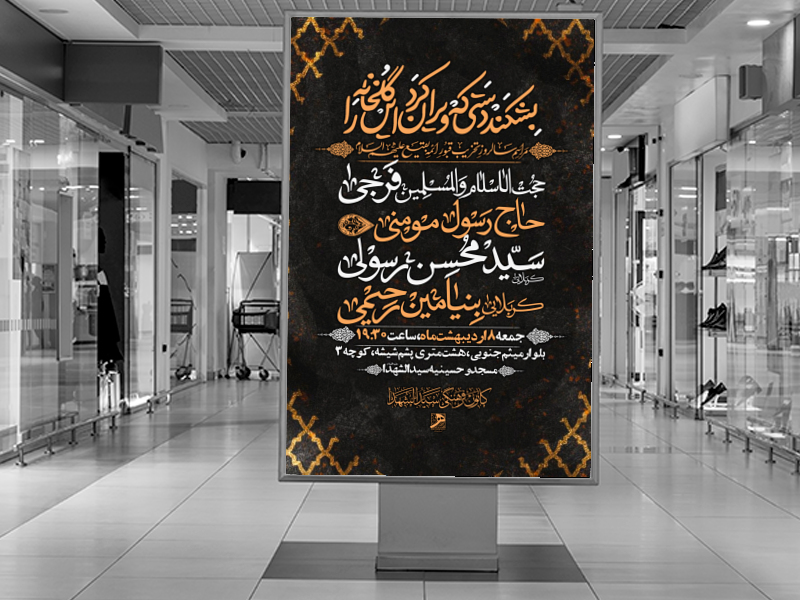 بشکند دستی که ویران کرد این گلخانه را
مراسم سالروز تخریب قبور ائمه بقیع علیهم السلام
حجت الاسلام والمسلمین فرجی
حاج رسول مومنی
سید محسن رسولی
کربلایی بنیامین رحیمی
جمعه ۸ اردیبهشت ماه، ساعت ۱۹:۳۰
بلوار میثم جنوبی، هشت متری پشم شیشه، کوچه ۳
مسجد و حسینیه سیدالشهدا
کانون فرهنگی سیدالشهدا